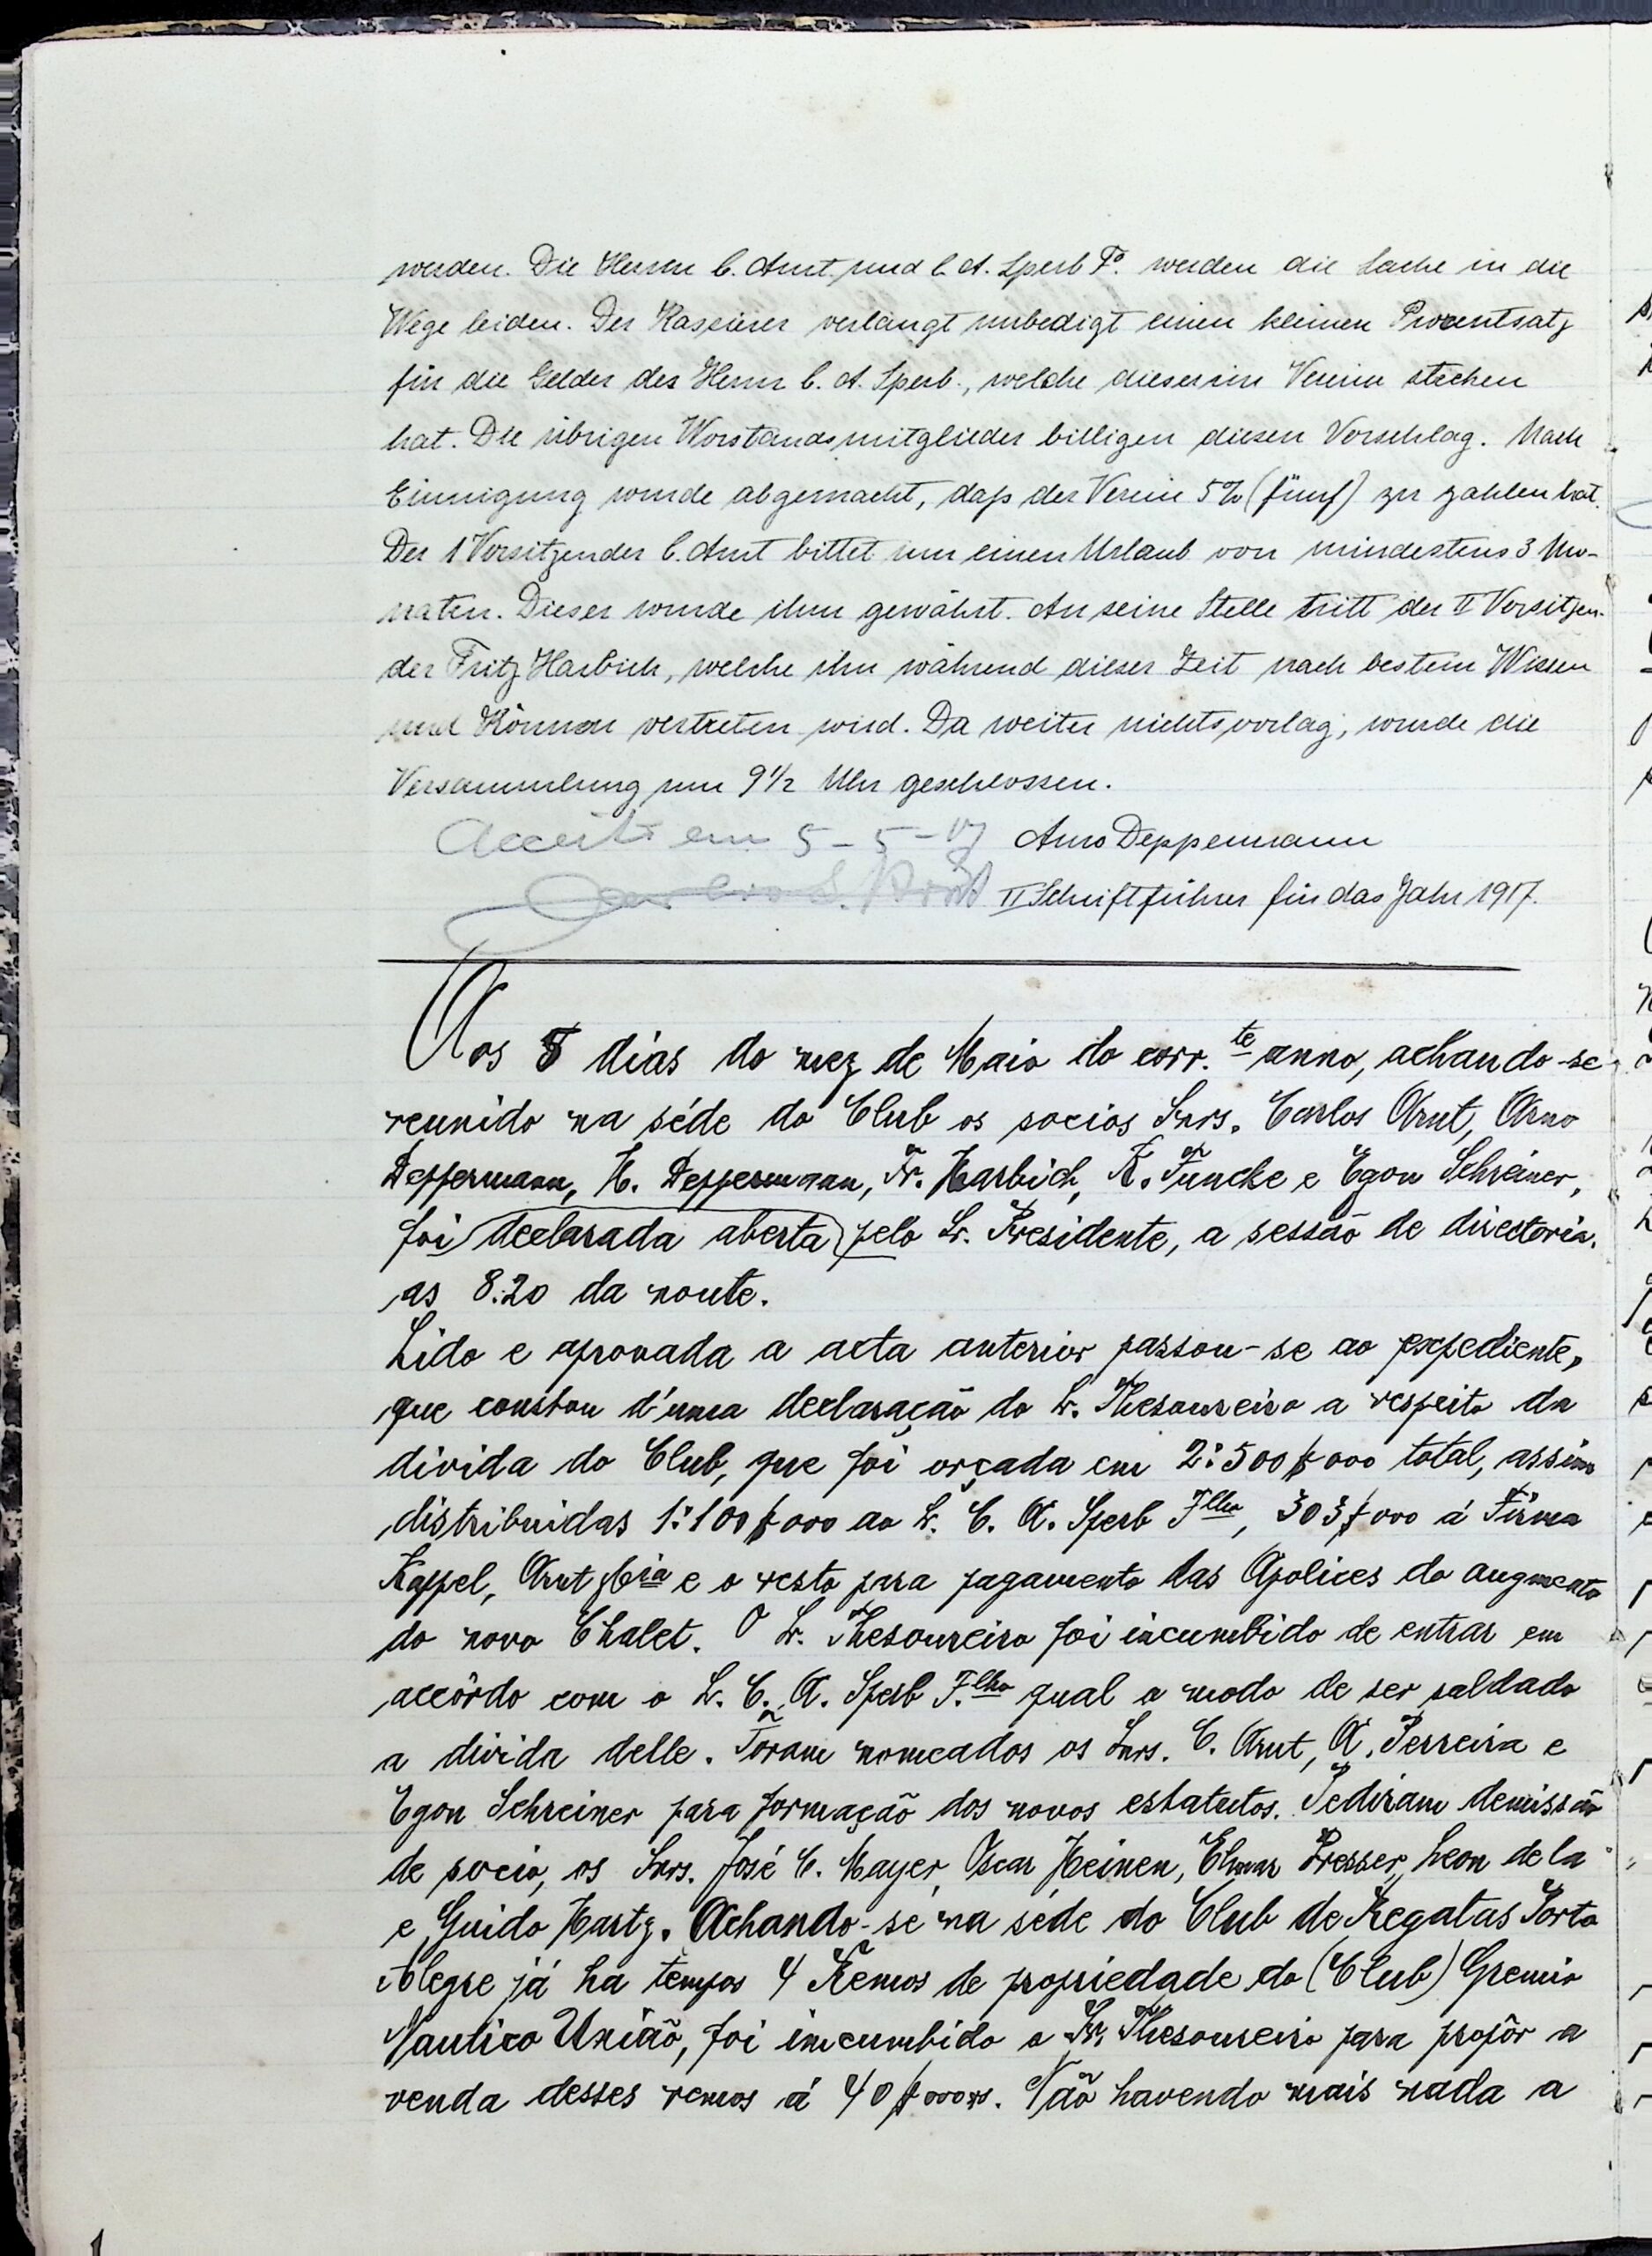 werden. Die Herren C. Arnt und C. A. Sperb Fº. werden die Sache in die
Wege leiden. Der Kassierer verlangt unbedigt einen kleinen Prozentsatz
für die Gelder des Herrn C. A. Sperb., welche dieser im Verein stechen
hat. Die übrigen Worstandsmitglieder billigen diesen Vorschlag. Nach
Einnigung wurde abgemacht, daß der Verein 5% (fünf) zu zahlen hat.
Der 1 Vorsitzender C. Arnt bittet um einen Urlaub von mindestens 3 Mo-
naten. Dieser wurde ihm gewährt. An seine Stelle tritt der II Vorsitzen-
der Fritz Harbich, welche ihn während dieser Zeit nach bestem Wissen
und Können vertreten wird. Da weiter nichts vorlag, wurde die
Versammlung um 9 1/2 Uhr geschlossen.
Acceita em 5-5-17 Arno Deppermann
II Schriftführer für das Jahr 1917.
Aos 5 dias do mez de Maio do corr.te anno, achando-se
reunido na séde do Club os socios Snrs. Carlos Arnt, Arno
Deppermann, H. Deppermann, Fr. Harbich, K. Funcke e Egon Schreiner,
foi declarada aberta pelo Sr. Presidente, a sessão de directoria.
as 8.20 da noute.
Lido e aprovada a acta anterior passou-se ao expediente,
que constou d'uma declaração do Sr. Thesoureiro a respeito da
divida do Club, que foi orçada em 2:500$000 total, assim
distribuidas 1:100$000 ao Sr. C. A. Sperb Filho, 303$000 á Firma
Kappel, Arnt & Cia e o resto para pagamento das Apolices do augmento
do novo Chalet. O Sr. Thesoureiro foi incumbido de entrar em
accôrdo com o Sr. C. A. Sperb F.lho qual o modo de ser saldado
a divida delle. Foram nomeados os Snrs. C. Arnt, A. Ferreira e
Egon Schreiner para formação dos novos estatutos. Pediram demissão
de socio, os Snrs. José C. Mayer, Oscar Heinen, Elmar Presser, Leon de la
e Guido Hartz. Achando-se na séde do Club de Regatas Porto
Alegre já ha tempos 4 Remos de propriedade do (Club) Gremio
Nautico União, foi imcumbido o Sr. Thesoureiro para propôr a
venda desses remos á 40$000rs. Não havendo mais nada a